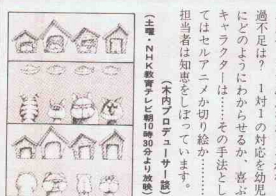 過不足は？　1対1の対応を幼児
にどのようにわからせるか、喜ぶ
キャラクターは……その手法とし
てはセルアニメか切り絵か……
担当者は知恵をしぼっています。
（木内プロデューサー談）
（土曜・NHK教育テレビ朝10時30分より放映）